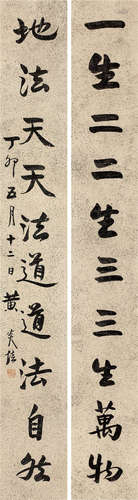 一生二二生三三生萬物
地法天天法道道法自然
丁卯五月十二日黃